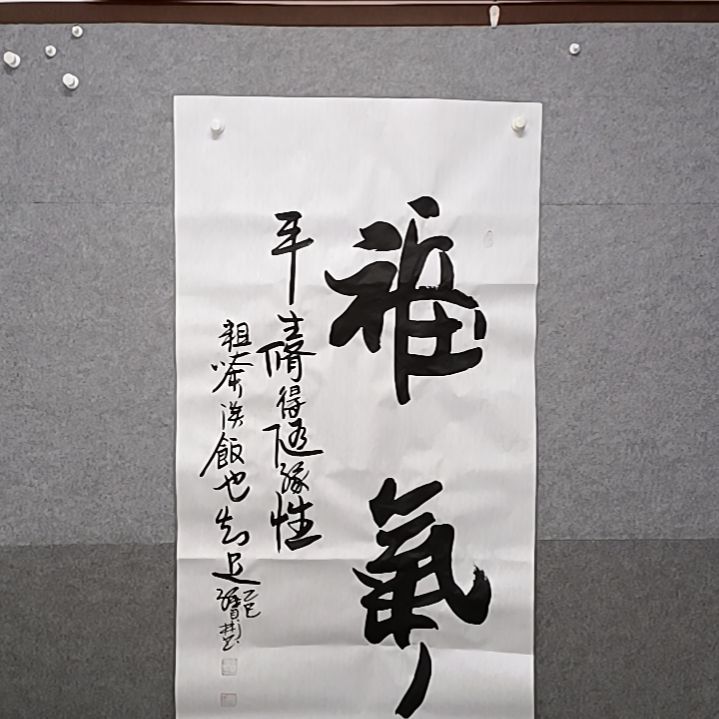 福氣
平生脩得隨緣性
粗茶淡飯也知足
乙巳